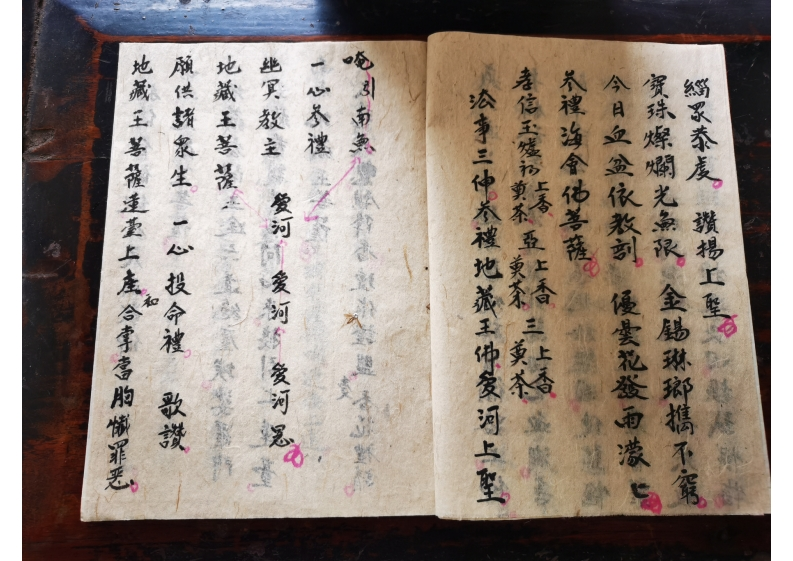 緇眾恭虔 讚揚上聖
寶珠燦爛光無限 金錫琳瑯携不窮
今日血盆依教割 優曇花發雨濛匕
参禮海會佛菩薩
孝信玉爐初上香奠茶 亞上香奠茶 三上香奠茶
法事三仲参禮地藏王佛愛河上聖
唵引南無
一心参禮
幽冥教主 愛河 愛河 愛河恩
地藏王菩薩
願供諸眾生 一心投命禮 歌讚
地藏王菩薩蓮臺上座初合掌當胸懺罪惡